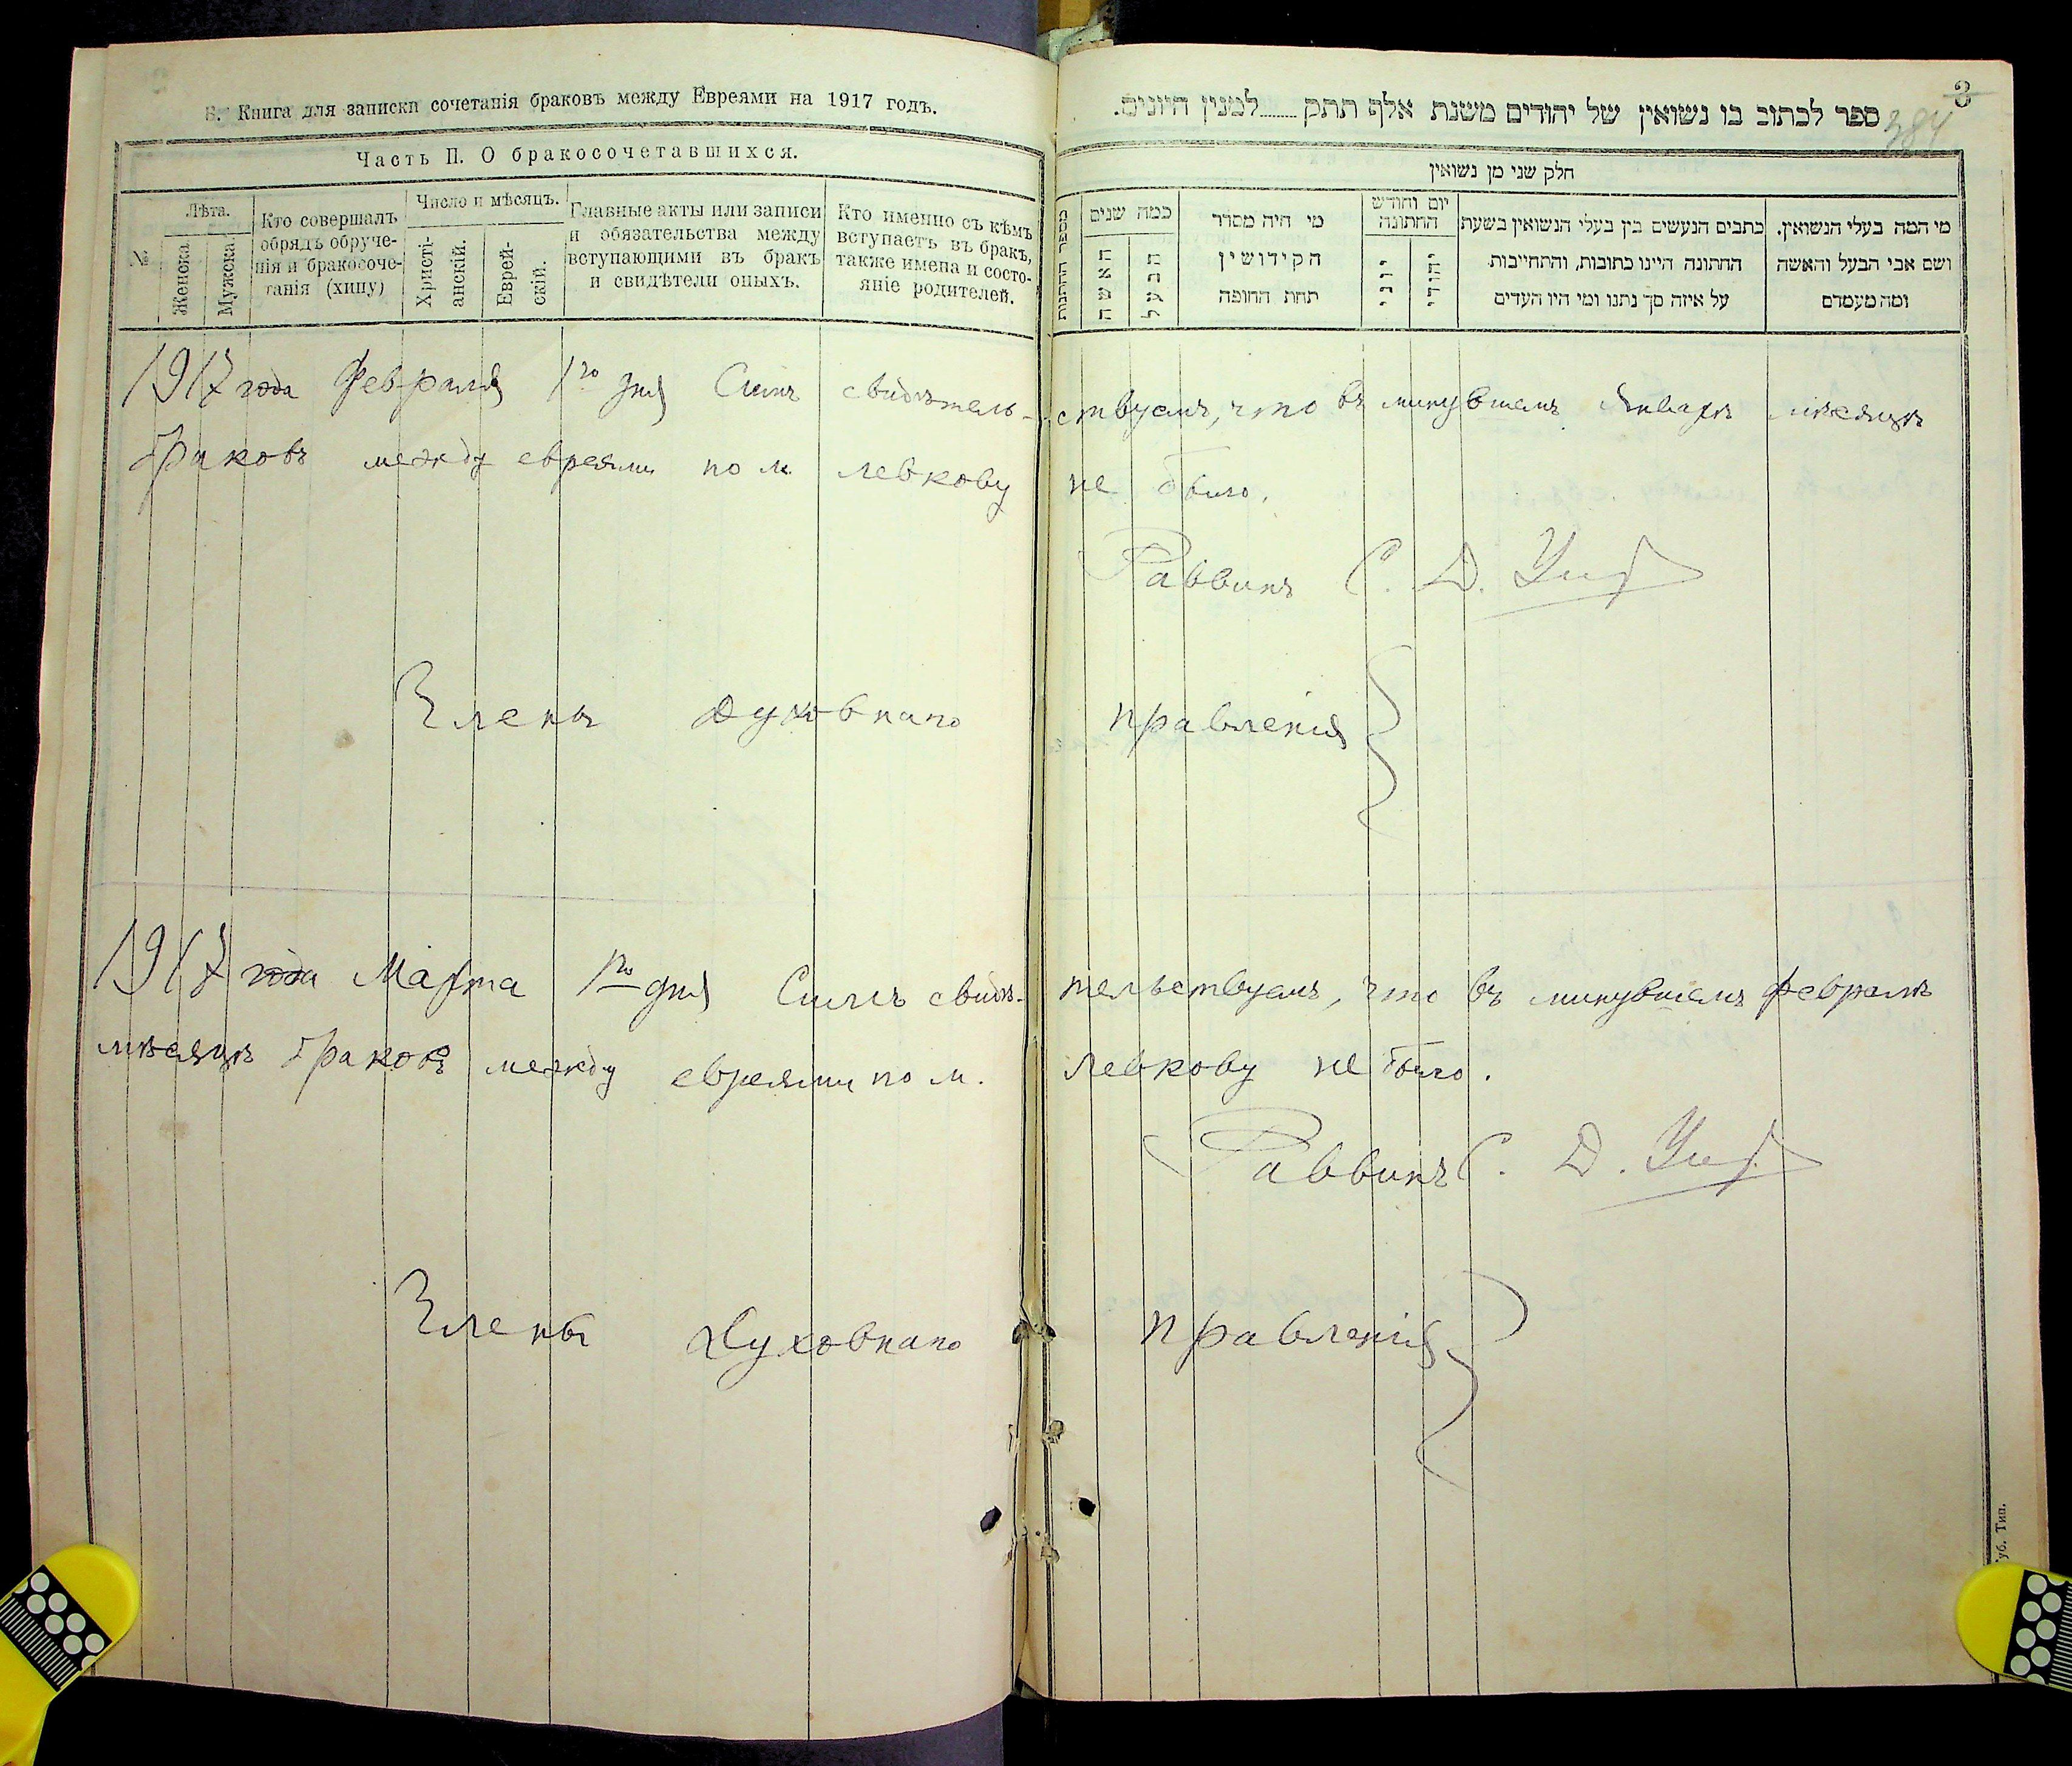 Б. Книга для записки сочетанія браковъ между Евреями на 1917 годъ.
Часть II. О бракосочетавшихся.
№
Лѣта.
Женска
Мужска
Кто совершалъ
обрядъ обруче-
нія и бракосоче-
танія (хипу)
Число и мѣсяцъ.
Христі-
анскій.
Еврей-
скій.
Главные акты или записи
и обязательства между
вступающими въ бракъ
и свидѣтели оныхъ.
Кто именно съ кѣмъ
вступаетъ въ бракъ,
также имена и состо-
яніе родителей.
3
384
ספר לכתוב בו נשואין של יהודים משנת אלף תתק........למנין היונים.
חלק שני מן נשואין
מספר החתונות
כמה שנים
האשה
הבעל
מי היה מסדר
הקידושין
תחת החופה
יום וחודש
החתונה
יוני
יהודי
כתבים הנעשים בין בעלי הנשואין בשעת
החתונה היינו כתובות, והתחייבות
על איזה סך נתנו ומי היו העדים
מי המה בעלי הנשואין.
ושם אבי הבעל והאשה
ומה מעמדם
1917 года Февраля 1го дня Симъ свидѣтель-ствуемъ, что въ минувшемъ Январѣ мѣсяцѣ
браковъ между евреями по м. Левкову не было.
Раввинъ С. Д.
Члены Духовнаго правленія
1917 года Марта 1го дня Симъ свидѣ-тельствуемъ, что въ минувшемъ Февралѣ
мѣсяцѣ браковъ между евреями по м. Левкову не было.
Раввинъ С. Д.
Члены Духовнаго правленія
Губ. Тип.